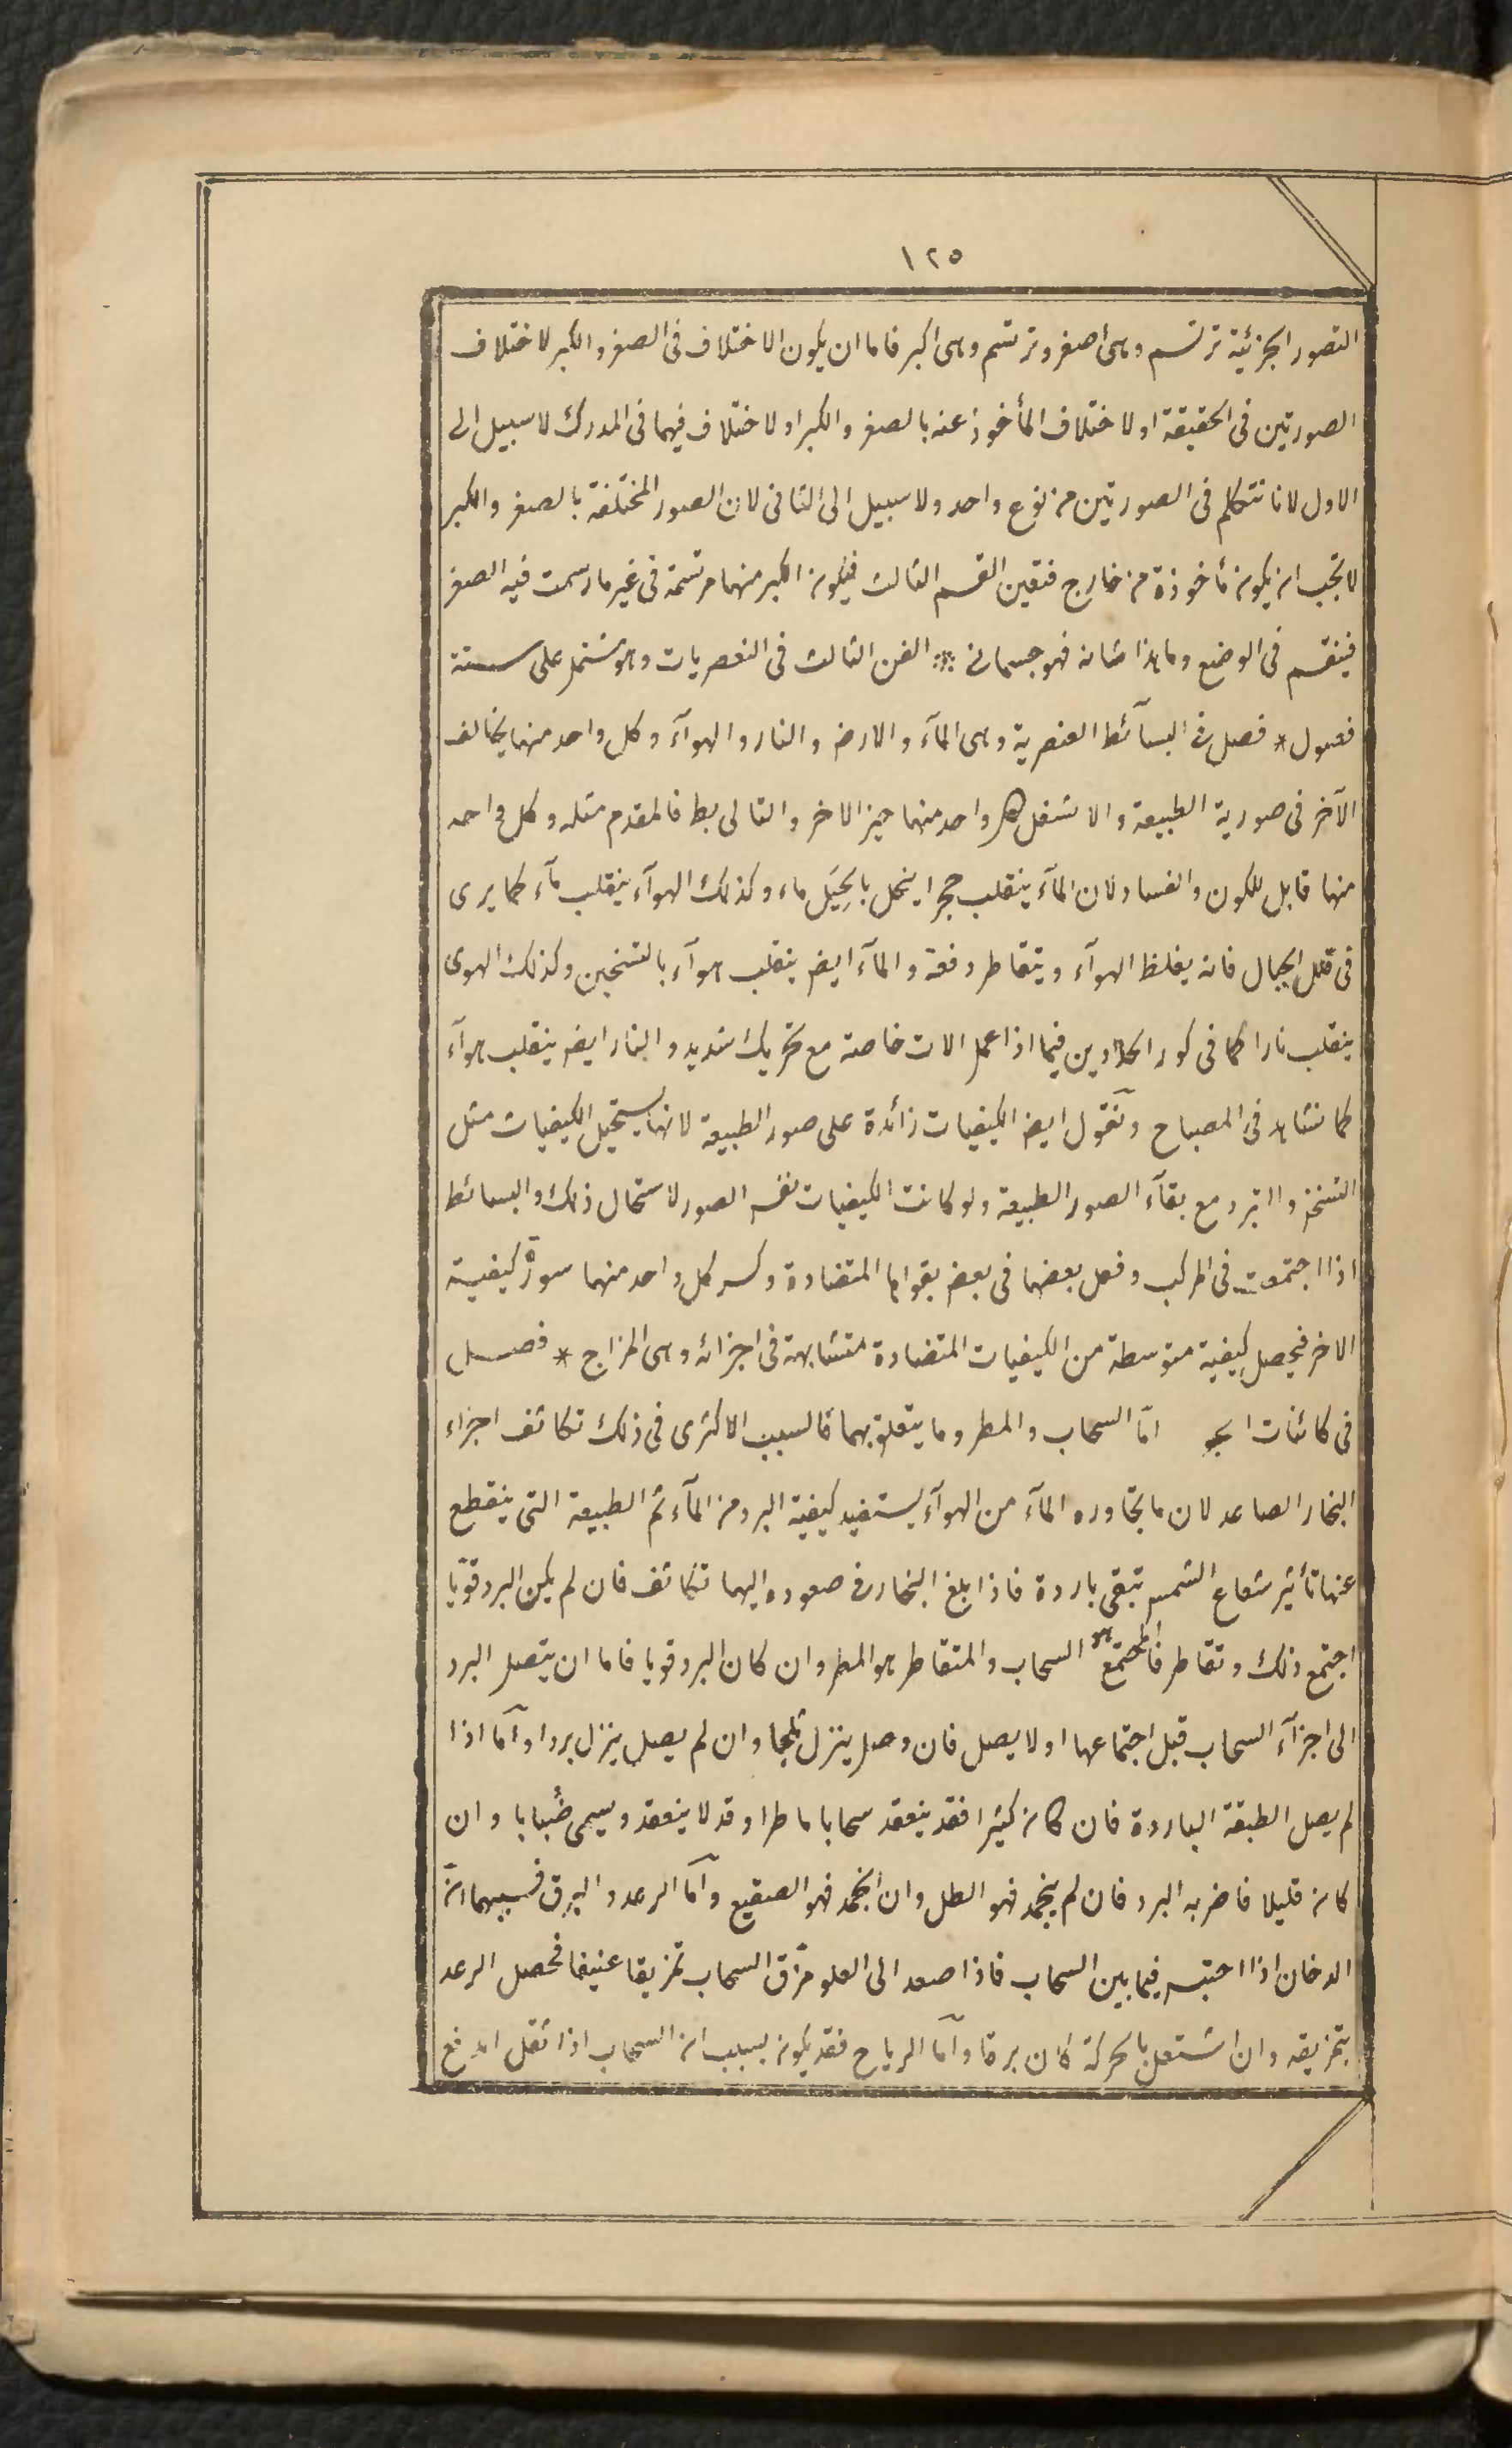 ١٢٥
التصور الجزئية ترتسم وهى اصغر وترتسم وهى اكبر فاما ان يكون الاختلاف فى الصغر والكبر لاختلاف
الصورتين فى الحقيقة او لاختلاف المأخوذ عنه بالصغر والكبر او لاختلاف فيهما فى المدرك لا سبيل الى
الاول لانا نتكلم فى الصورتين من نوع واحد ولا سبيل الى الثانى لان الصور المختلفة بالصغر والكبر
لا يجب ان يكون مأخوذة من خارج فتعين القسم الثالث فيكون الكبر منهما مرتسمة فى غير ما رسمت فيه الصغر
فينقسم فى الوضع وما هذا شانه فهو جسمانى ⁘ الفن الثالث فى العنصريات وهو مشتمل على ستة
فصول * فصل فى البسآئط العنصرية وهى المآء والارض والنار والهوآء وكل واحد منها يخالف
الآخر فى صورية الطبيعة والا لشغل كل واحد منهما حيز الاخر والتالى بط فالمقدم مثله وكل واحد
منها قابل للكون والفساد لان المآء ينقلب حجرا ينحل بالحِيَل ماء وكذلك الهوآء ينقلب مآء كما يرى
فى قلل الجبال فانه يغلظ الهوآء ويتقاطر دفعة والمآء ايضر ينقلب هوآء بالتسخين وكذلك الهوى
ينقلب نارا كما فى كور الحدادين فيما اذا عمل الات خاصة مع تحريك شديد والنار ايضر ينقلب هوآء
كما نشاهد فى المصباح ونقول ايضر الكيفيات زائدة على صور الطبيعة لانها يستحيل الكيفيات مثل
التسخن والتبرد مع بقآء الصور الطبيعة ولو كانت الكيفيات نفس الصور لاستحال ذلك والبسائط
اذا اجتمعت فى المركب وفعل بعضها فى بعض بقواها المتضادة وكسر كل واحد منهما سورة كيفية
الاخر فيحصل كيفية متوسطة من الكيفيات المتضادة متشابهة فى اجزائه وهى المزاج * فصل
فى كائنات الجو امّا السحاب والمطر وما يتعلق بهما فالسبب الاكثرى فى ذلك تكاثف اجزاء
البخار الصاعد لان ما يجاوره المآء من الهوآء يستفيد كيفية البرد من المآء ثم الطبيعة التى ينقطع
عنها تأثير شعاع الشمس تبقى باردة فاذا بلغ البخار فى صعوده اليها تكاثف فان لم يكن البرد قويّا
اجتمع ذلك وتقاطر فالمجتمع هو السحاب والمتقاطر هو المطر وان كان البرد قويا فاما ان يتصل البرد
الى اجزآء السحاب قبل اجتماعها او لا يصل فان وصل ينزل ثلجا وان لم يصل ينزل بردا وامّا اذا
لم يصل الطبقة الباردة فان كان كثيرا فقد ينعقد سحابا ماطرا وقد لا ينعقد ويسمى ضُبابا وان
كان قليلا فاضر به البرد فان لم ينجمد فهو الطل وان انجمد فهو الصقيع وامّا الرعد والبرق فسببهما انّ
الدخان اذا احتبس فيما بين السحاب فاذا صعد الى العلو مزّق السحاب تمزيقا عنيفا فحصل الرعد
بتمزيقه وان اشتعل بالحركة كان برقا وامّا الرياح فقد يكون بسبب ان السحاب اذا ثقل اندفع